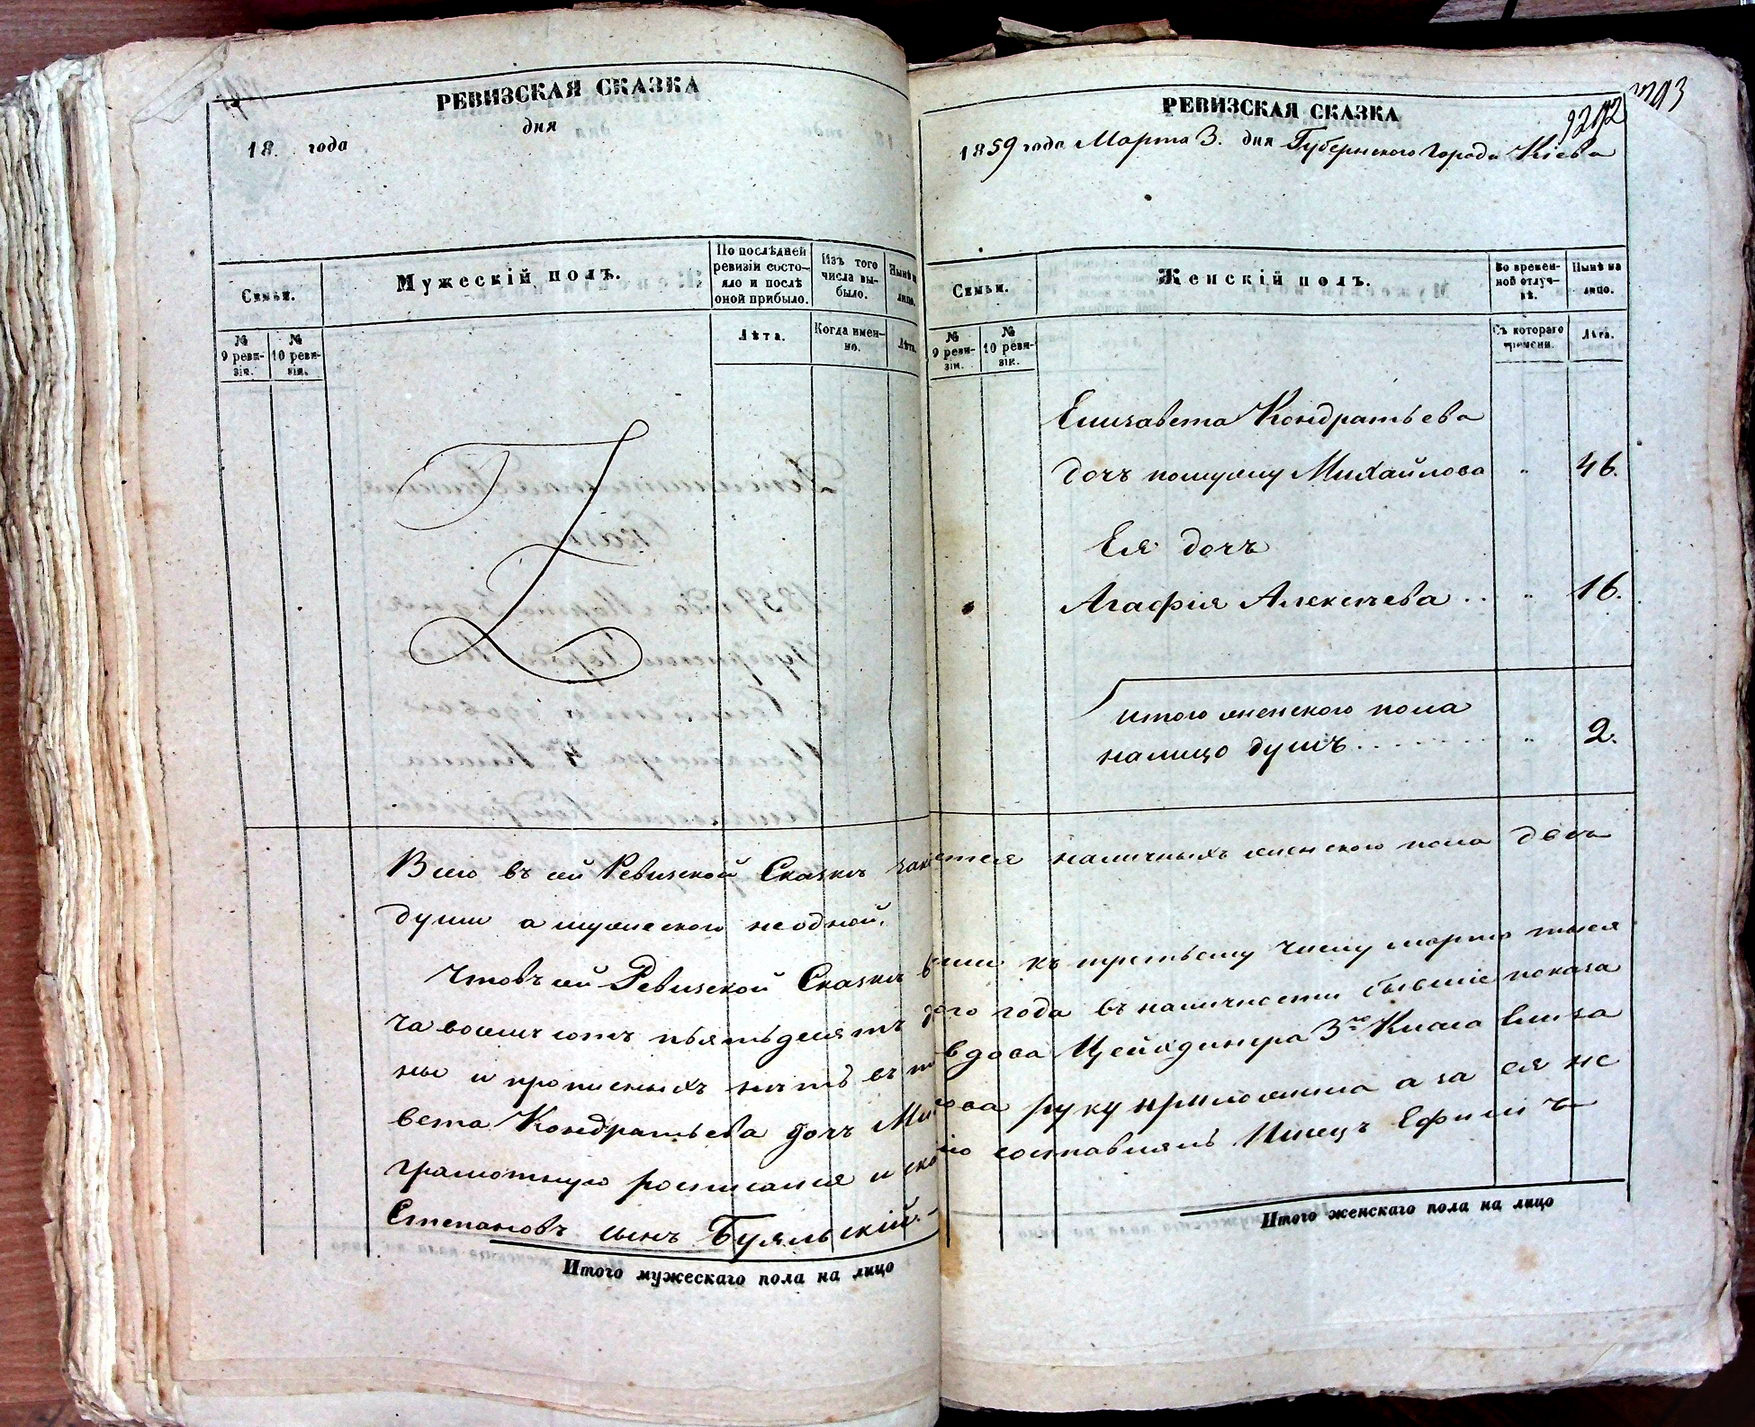 РЕВИЗСКАЯ СКАЗКА
18 года дня
Семьи.
Мужескій полъ.
По послѣдней ревизіи состо-
яло и послѣ оной прибыло.
Изъ того числа вы-
было.
Нынѣ на лицо.
№ 9 реви-
зіи.
№ 10 реви-
зіи.
Лѣта.
Когда имен-
но.
Лѣта.
РЕВИЗСКАЯ СКАЗКА
1292
1293
1859 года Марта 3. дня Губернскаго Города Кіева
Семьи.
Женскій полъ.
Во времен-
ной отлуч-
кѣ.
Нынѣ на лицо.
№ 9 реви-
зіи.
№ 10 реви-
зіи.
Съ котораго времени.
Лѣта.
Елизавета Кондратьева
дочъ помужу Михайлова " 46.
Ея дочъ
Агафія Алексѣева . . " 16.
Итого женского пола
налицо душъ . . . . . . . . " 2.
Всего въ сей Ревизской Сказкѣ наличныхъ женского пола двѣ
души а мужеского неодной.
Чтовъ сей Ревизской Сказкѣ всѣ къ третьему числу марта тыся
ча восемъ сотъ пьятьдесятъ года въ наличности бывшіе показа
ны и прописныхъ нѣтъ въ томъ вдова Цейхдинера 3го Класа Елиза
вета Кондратьева дочъ Михайлова руку приложила а за ея не
грамотную росписался и сказку сію составлялъ Писецъ Ефимъ
Степановъ сынъ Буяльскій.
Итого мужескаго пола на лицо
Итого женскаго пола на лицо